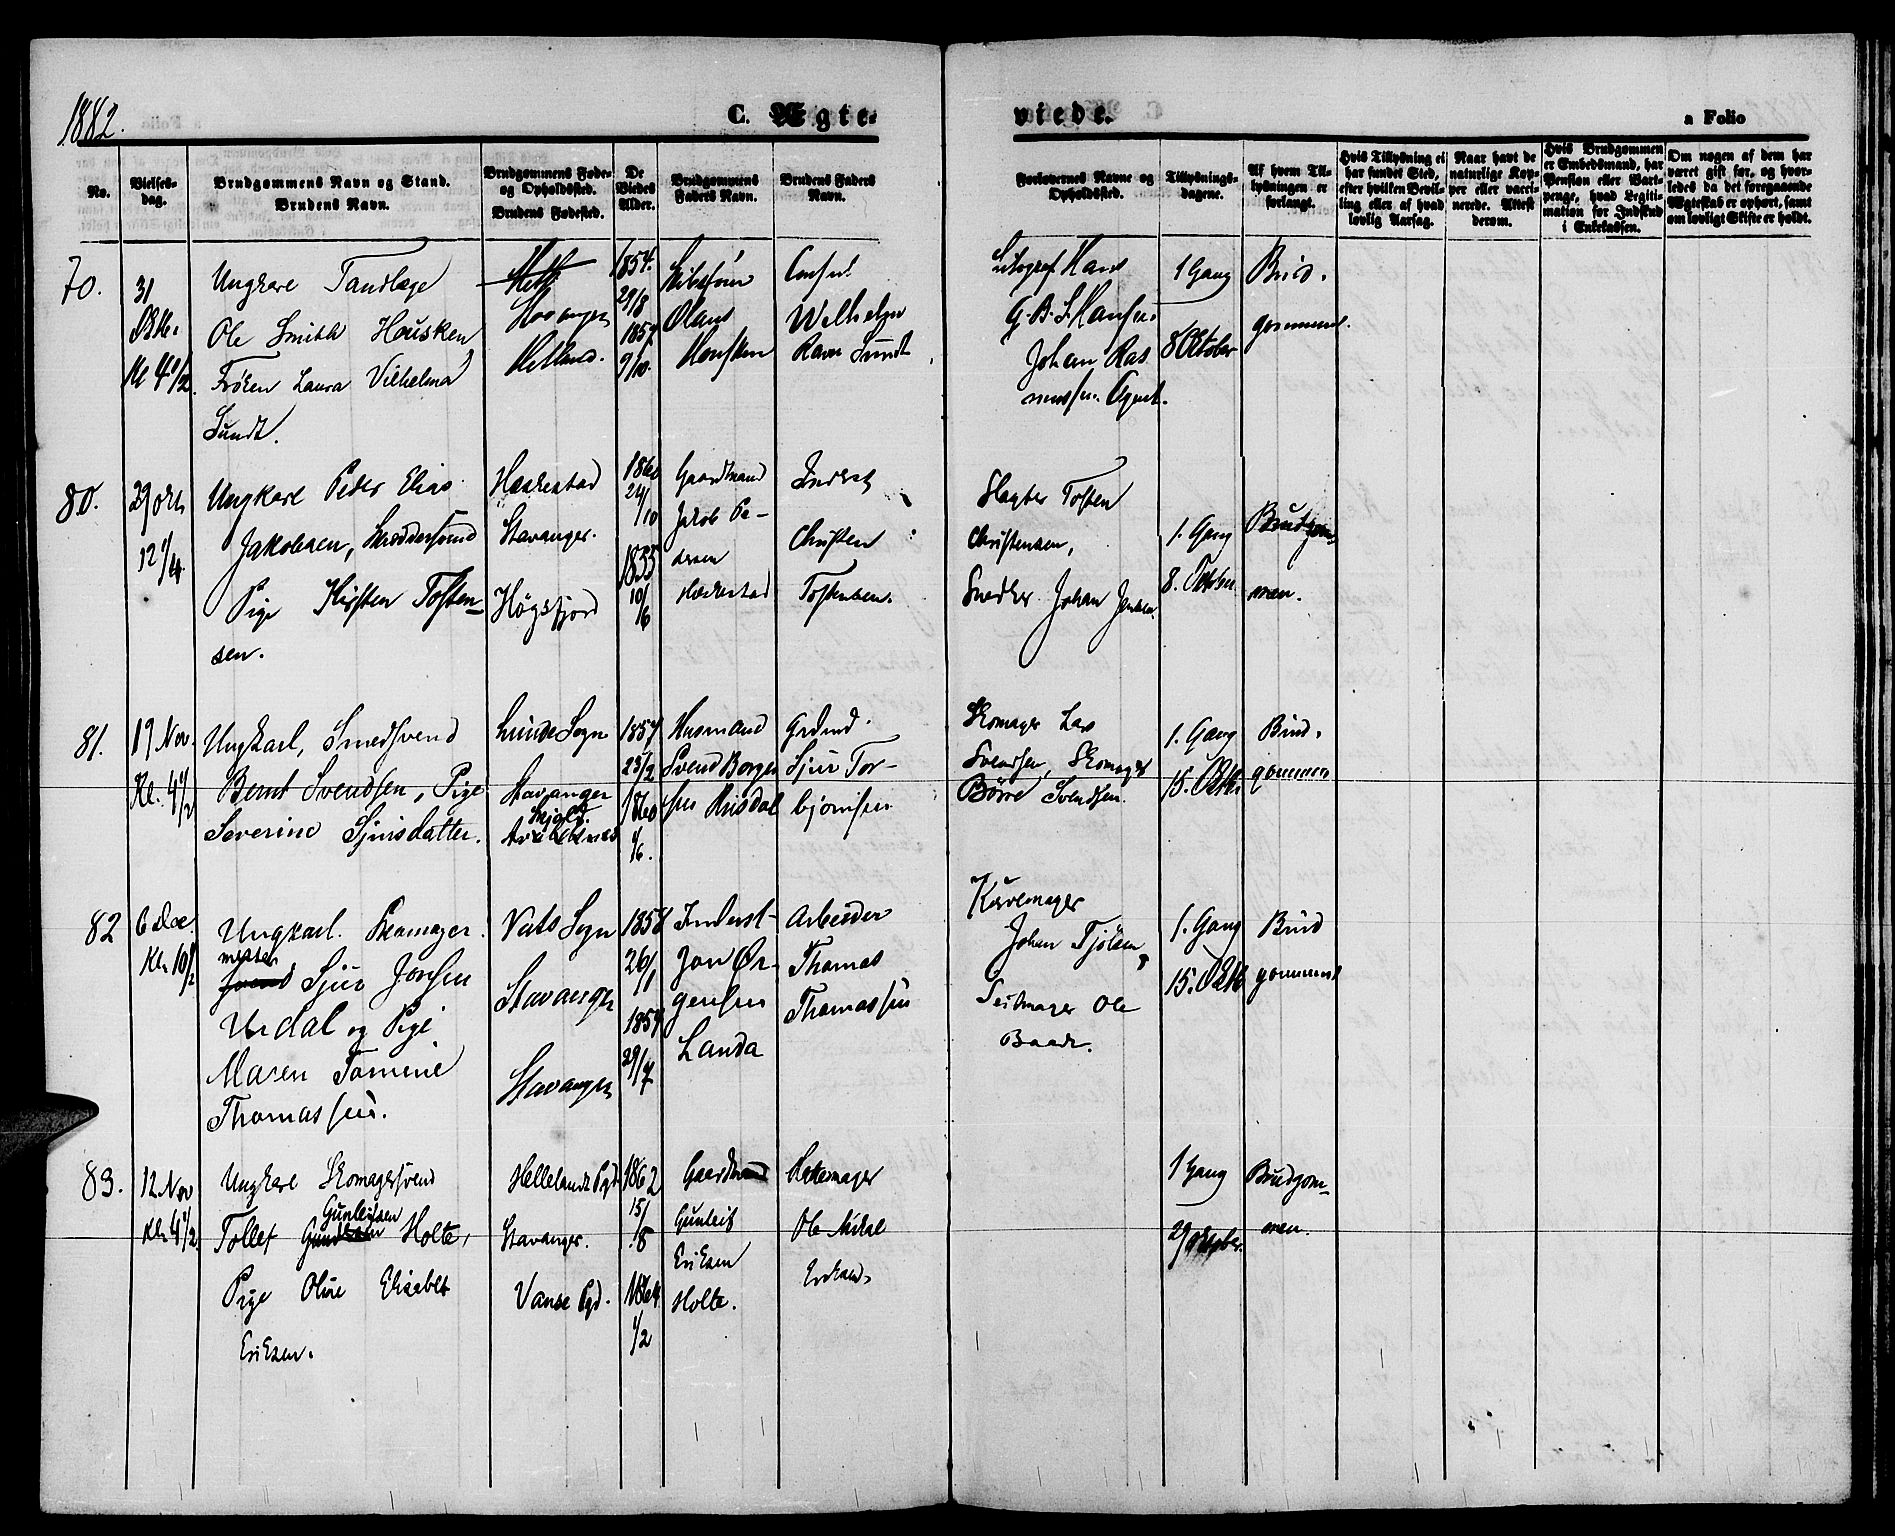 1882.
C. Ægte-
viede.
a Folio
No.
Vielses-
dag.
Brudgommens Navn og Stand.
Brudens Navn.
Brudgommens Føde-
og Opholdssted.
Brudens Fødested.
De
Viedes
Alder.
Brudgommens
Faders Navn.
Brudens Faders
Navn.
Forlovernes Navne og
Opholdssted.
Tillysnings-
dagene.
Af hvem Til-
lysningen er
forlangt.
Hvis Tillysning ei
har fundet Sted,
efter hvilken Bevil-
ling eller af hvad
lovlig Aarsag.
Naar havt de
naturlige Kop-
per eller vacci-
nerede. Attest
derom.
Hvis Brudgommen
er Embedsmand, har
Pension eller Vart-
penge, hvad Legiti-
mation for Indskud
i Enkekassen.
Om nogen af dem har
været gift før, og hvor-
ledes da det foregaaende
Ægteskab er ophørt, samt
om lovligt Skifte er holdt.
70.
31
Kl 4 1/2
Ungkarl Tandlæge
Ole Smith Housken
Frøken Laura Vilhelma
Sundt.
Stavanger
Hetland.
1854.
29/8
1857
9/10.
Olaus
Housken
Consul
Wilhelm
Ravn Sundt
Litograf Hans
G. B. S. Hansen.
Johan Ras
mussen. Agent.
1 Gang
8 October
Brud.
gommen.
80.
29 Okt
12 1/4
Ungkarl Peder Elias
Jakobsen, Skræddersvend
Pige Kirsten Tosten-
sen.
Haskestad
Stavanger.
Høgsfjord
1860
24/10
1855
10/6
Gaardmand
Jakob Pe-
dersen
Inderst
Christen
Tostensen.
Slagter Tosten
Christensen,
Snedker Johan Jensen.
1. Gang
8. October
Brudgom-
men.
81.
19 Nov.
Kl. 4 1/2
Ungkarl, Smedsvend
Bernt Svendsen, Pige
Severine Sjursdatter.
Lunde Sogn
Stavanger
Skjold.
1857
23/2
1860
4/6.
Husmand
Svend Borger
sen Risdal
Grdmd.
Sjur Tor-
bjørnsen
Skomager Lars
Svendsen, Skomager
Børre Svendsen.
1. Gang
15. Okt.
Brud.
gommen
82
6 Dec.
Kl. 10 1/2
Ungkarl. Skomager.
mester
svend Sjur Jonsen
Urdal og Pige
Maren Tomine
Thomassen.
Vats Sogn
Stavanger
Stavanger
1858
26/1
1854
29/7
Inderst-
Jon Ør-
gensen
Landa
Arbeider
Thomas
Thomassen
Kurvemager
Johan Tjølsen,
Seilmager Ole
Baade.
1. Gang
15. Okt
Brud
gommen
83.
12 Nov
Kl. 4 1/2
Ungkarl Skomagersvend
Gunleifsen
Tollef Holte,
Pige Oline Elisabet
Eriksen.
Hellelands Pgd.
Stavanger.
Vanse Pgd.
1862
15/8
1864
1/2
Gaardmand
Gunleif
Eriksen
Holte.
Hattemager
Ole Mikal
Eriksen.
1 Gang
29 oktober.
Brudgom-
men.